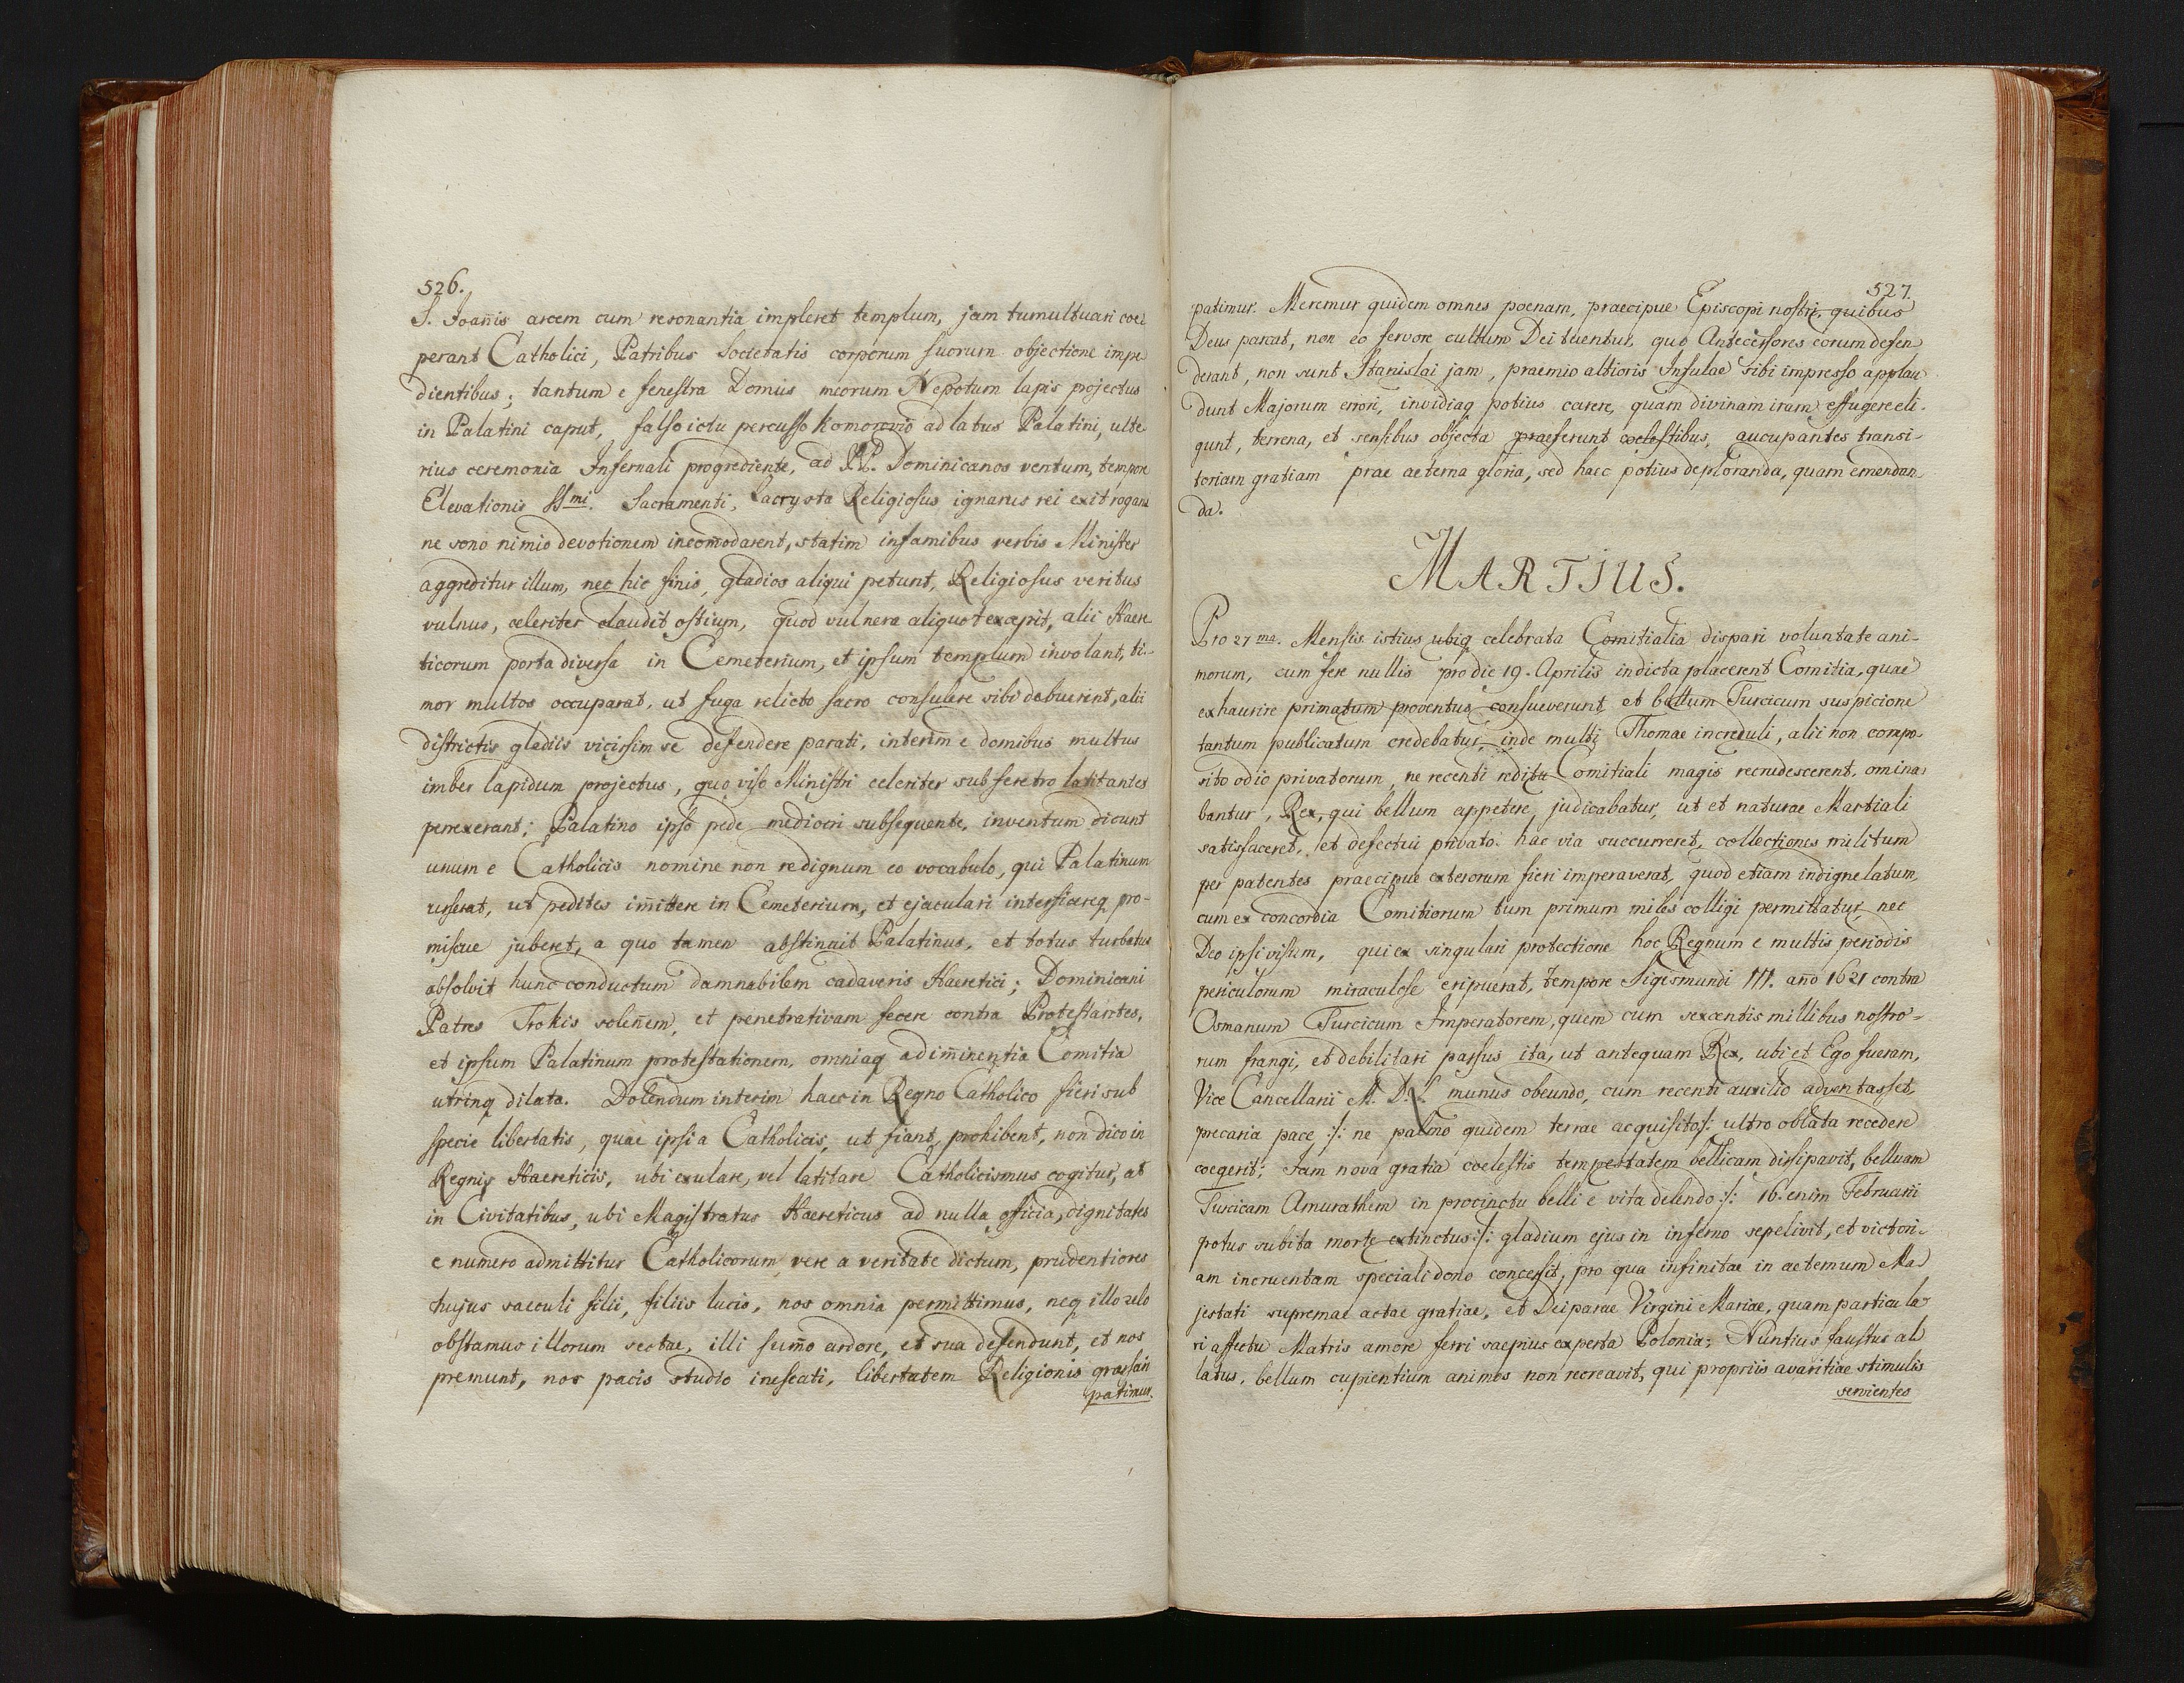 526.
S. Joan̄is arcem cum resonantia impleret templum, jam tumultuari coe-
perant Catholici, Patribus Societatis corporum suorum objectione impe
dientibus; tantum e fenestra Domus meorum Nepotum lapis projectus
in Palatini caput, falso ictu percusso Komorovio ad latus Palatini, ulte
rius ceremonia Infernali progrediente, ad PP. Dominicanos ventum, tempore
Elevationis SSmi. Sacramenti, Sacrysta Religiosus ignarus rei exit rogans
ne sono nimio devotionem incom̄odarent, statim infamibus verbis Minister
aggreditur illum, nec hic finis, gladios aliqui petunt, Religiosus veritus
vulnus, celeriter claudit ostium, quod vulnera aliquot excepit, alii Haere
ticorum porta diversa in Cemeterium, et ipsum templum involant, ti-
mor multos occuparat, ut fuga relicto sacro consulere sibi debuerint, alii
districtis gladiis vicissim se defendere parati, interim e domibus multus
imber lapidum projectus, quo viso Ministri celeriter sub feretro latitantes
perrexerant; Palatino ipso pede mediocri subsequente, inventum dicunt
unum e Catholicis nomine non re dignum eo vocabulo, qui Palatinum
urserat, ut pedites im̄ittere in Cemeterium, et ejaculari interficereq pro-
miscue juberet, a quo tamen abstinuit Palatinus, et totus turbatus
absolvit hunc conductum damnabilem cadaveris Haeretici; Dominicani
Patres Trokis solen̄em, et penetrativam fecere contra Protestantes,
et ipsum Palatinum protestationem, omniaq ad im̄inentia Comitia
utrinq dilata. Dolendum interim haec in Regno Catholico fieri sub
specie libertatis, quae ipsi a Catholicis, ut fiant, prohibent, non dico in
Regnis Haereticis, ubi exulare, vel latitare Catholicismus cogitur, at
in Civitatibus, ubi Magistratus Haereticus ad nulla officia, dignitates
e numero admittitur Catholicorum, vere a veritate dictum, prudentiores
hujus saeculi filii, filiis lucis, nos omnia permittimus, neq illo zelo
obstamus illorum sectae, illi sum̄o ardore, et sua defendunt, et nos
premunt, nos pacis studio inescati, libertatem Religionis grassari
patimur.
527.
patimur. Meremur quidem omnes poenam, praecipue Episcopi nostri, quibus
Deus parcat, non eo fervore cultum Dei tuentur, quo Antecessores eorum defen
derant, non sunt Stanislai jam, praemio altioris Insulae sibi impresso applau
dunt Majorum errori, invidiaq potius carere, quam divinam iram effugere eli-
gunt, terrena, et sensibus objecta praeferunt coelestibus, aucupantes transi-
toriam gratiam prae aeterna gloria, sed haec potius deploranda, quam emendan
da.
MARTIUS.
Pro 27ma. Mensis istius ubiq celebrata Comitialia dispari voluntate ani-
morum, cum fere nullis pro die 19. Aprilis indicta placerent Comitia, quae
exhaurire primatum proventus consueverunt, et bellum Turcicum suspicione
tantum publicatum credebatur, inde multi Thomae increduli, alii non compo-
sito odio privatorum, ne recenti reditu Comitiali magis recrudescerent, omina-
bantur, Rex, qui bellum appetere judicabatur, ut et naturae Martiali
satisfaceret, et defectui privato hac via succurreret, collectiones militum
per patentes praecipue exterorum fieri imperaverat, quod etiam indigne latum,
cum ex concordia Comitiorum tum primum miles colligi permittatur, nec
Deo ipsi visum, qui ex singulari protectione hoc Regnum e multis periodis
periculorum miraculose eripuerat, tempore Sigismundi III. an̄o 1621 contra
Osmanum Turcicum Imperatorem, quem cum sexcentis millibus nostro-
rum frangi, et debilitari passus ita, ut antequam Rex, ubi et Ego fueram,
Vice Cancellarii M. D. L. munus obeundo, cum recenti auxilio adventasset,
precaria pace :/: ne palmo quidem terrae acquisito :/: ultro oblata recedere
coegerit; Jam nova gratia coelestis tempestatem bellicam dissipavit, belluam
Turcicam Amurathem in procinctu belli e vita delendo :/: 16. enim Februarii
potus subita morte extinctus :/: gladium ejus in inferno sepelivit, et victori-
am incruentam speciali dono concessit, pro qua infinitae in aeternum Ma
jestati supremae actae gratiae, et Deiparae Virgini Mariae, quam particula-
ri affectu Matris amore ferri saepius experta Polonia; Nuntius faustus al
latus, bellum cupientium animos non recreavit, qui propriis avaritiae stimulis
servientes